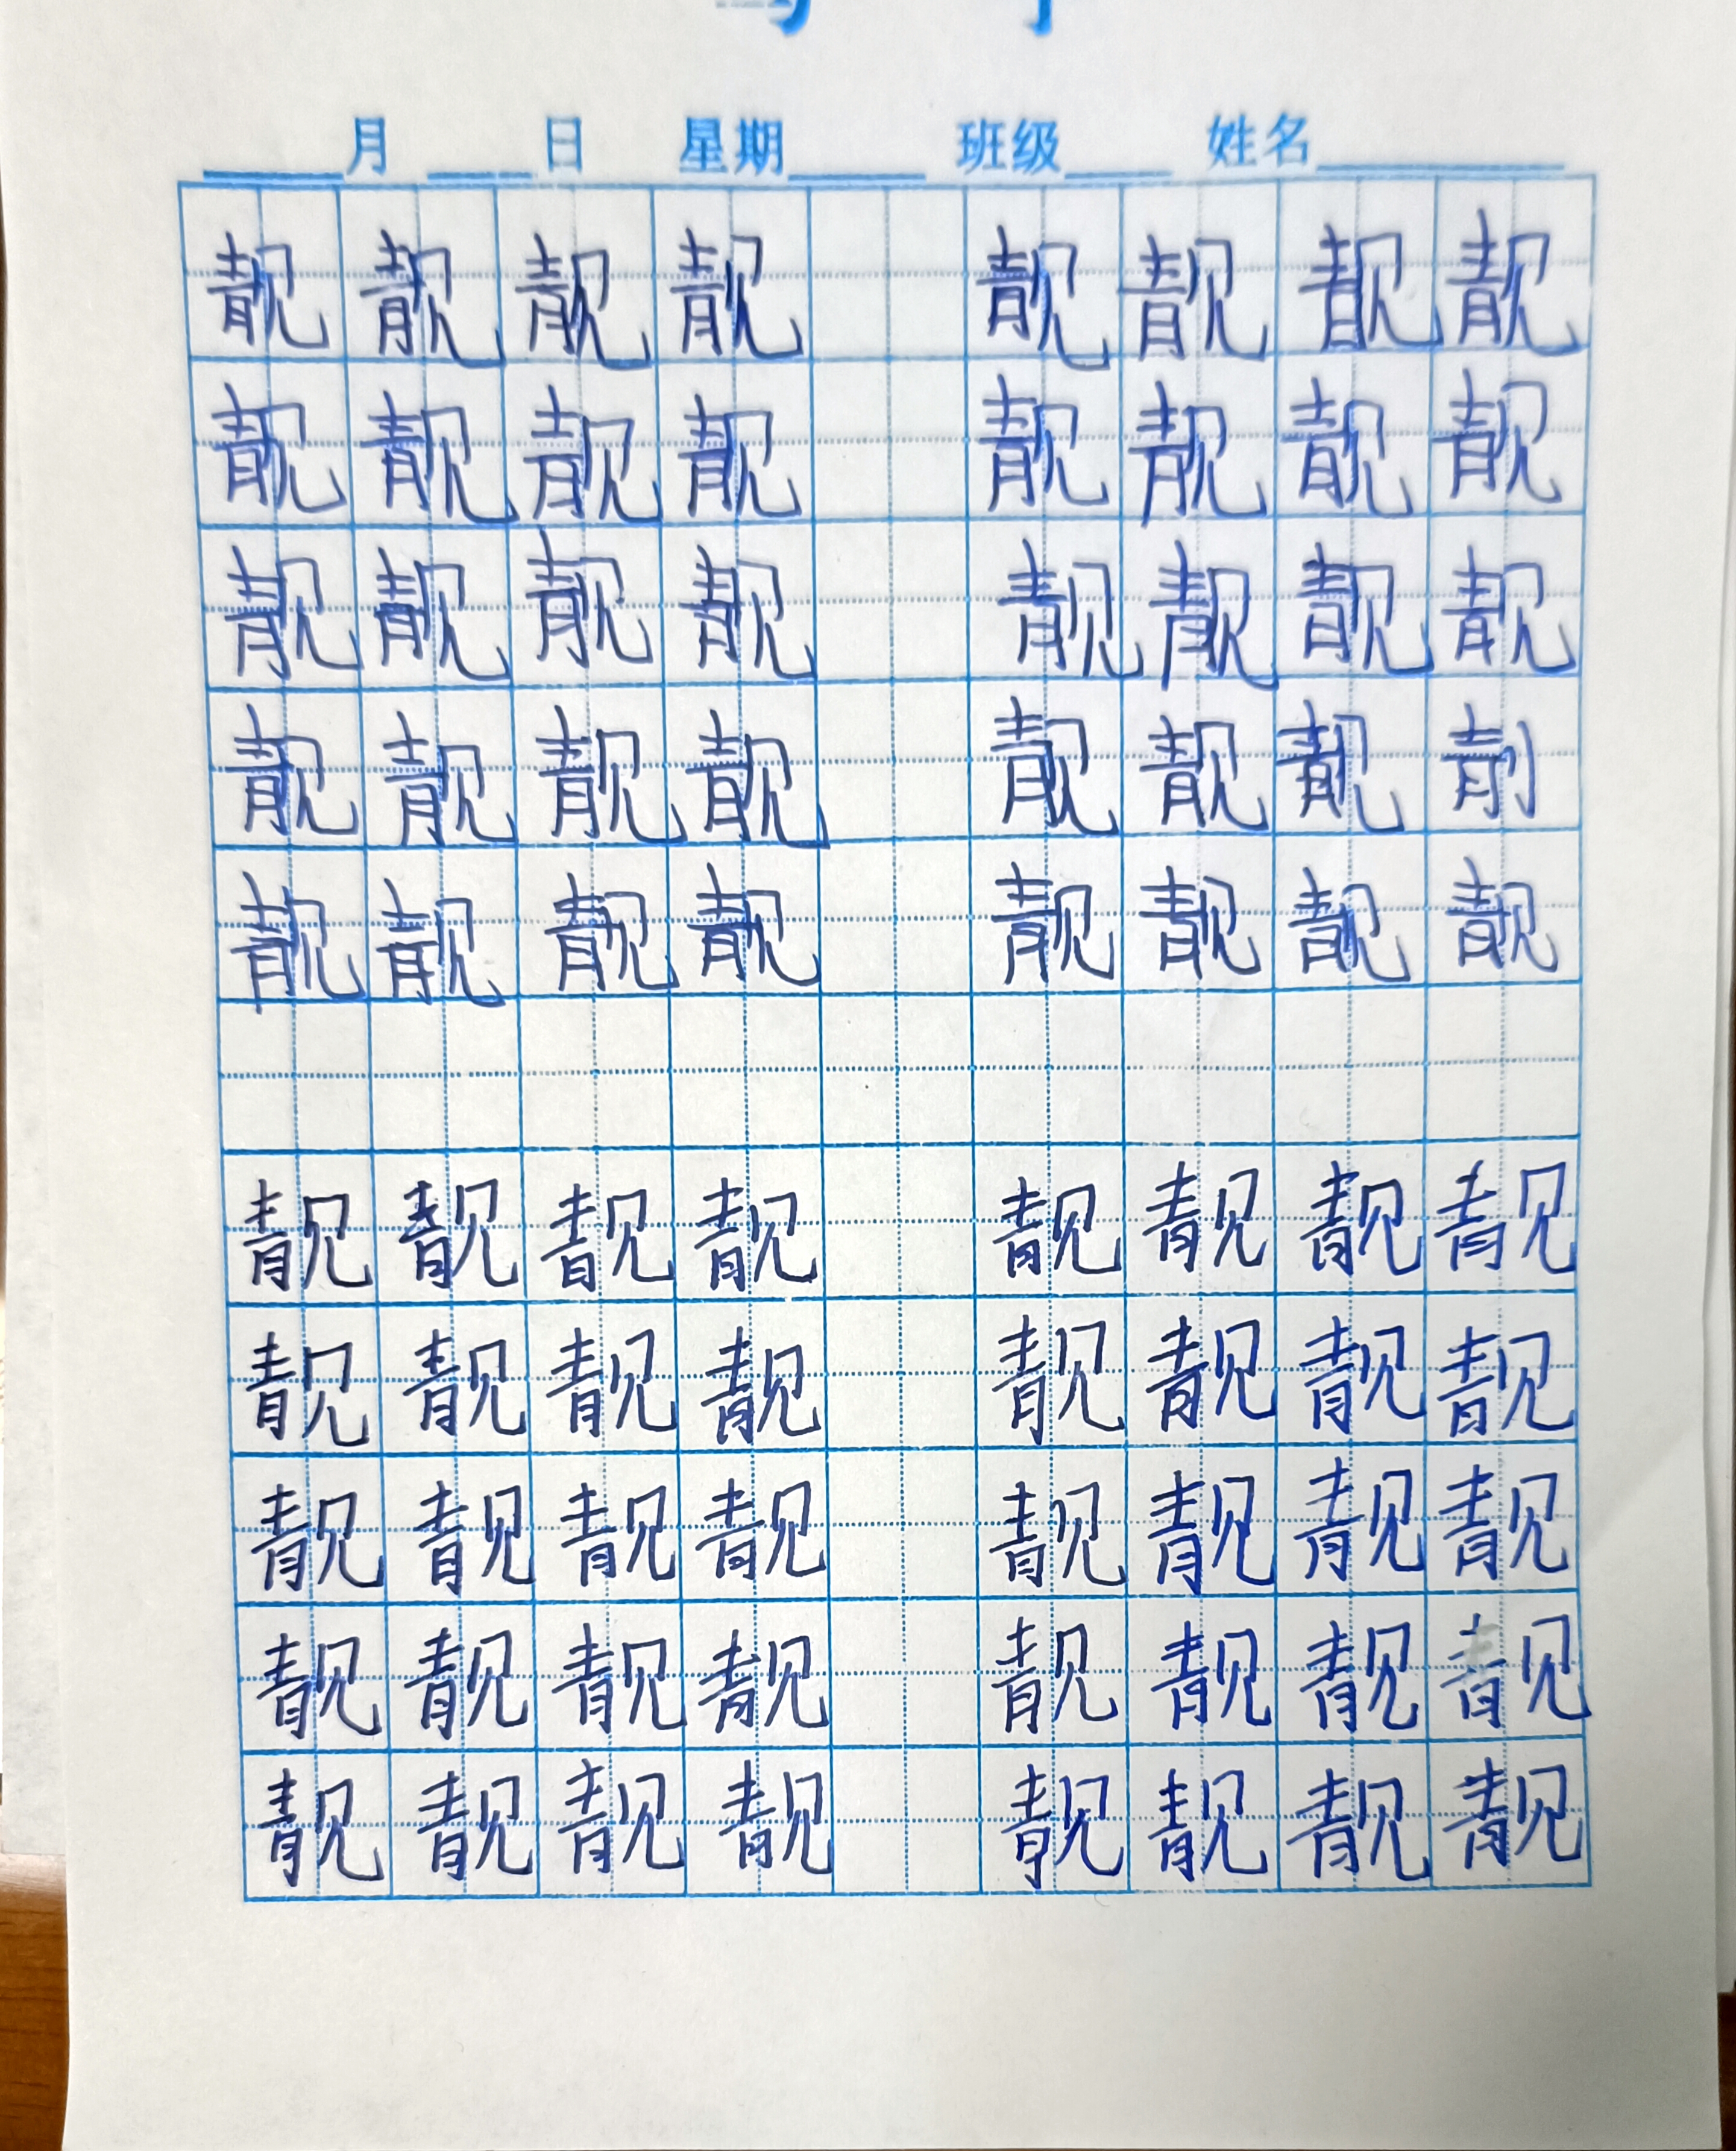 月 日 星期 班级 姓名
靓 靓 靓 靓 靓 靓 靓 靓
靓 靓 靓 靓 靓 靓 靓 靓
靓 靓 靓 靓 靓 靓 靓 靓
靓 靓 靓 靓 靓 靓 靓
靓 靓 靓 靓 靓 靓 靓 靓
靓 靓 靓 靓 靓 靓 靓 靓
靓 靓 靓 靓 靓 靓 靓 靓
靓 靓 靓 靓 靓 靓 靓 靓
靓 靓 靓 靓 靓 靓 靓 靓
靓 靓 靓 靓 靓 靓 靓 靓